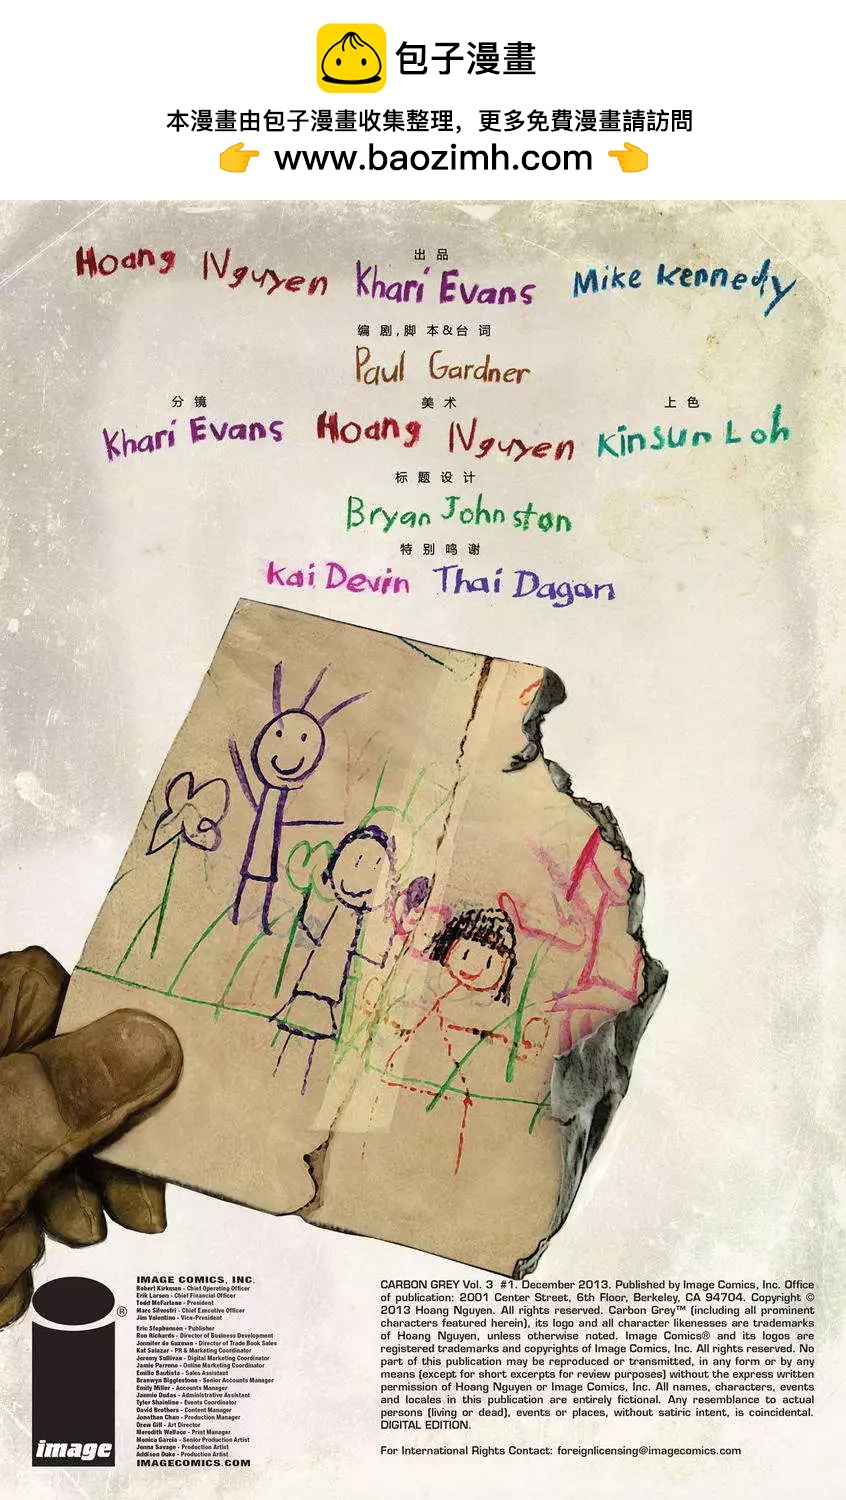 包子漫畫
本漫畫由包子漫畫收集整理，更多免費漫畫請訪問
👉 www.baozimh.com 👈
出品
Hoang Nguyen Khari Evans Mike Kennedy
编剧,脚本&台词
Paul Gardner
分镜 美术 上色
Khari Evans Hoang Nguyen Kinsun Loh
标题设计
Bryan Johnston
特别鸣谢
Kai Devin Thai Dagan
IMAGE COMICS, INC.
Robert Kirkman - Chief Operating Officer
Erik Larsen - Chief Financial Officer
Todd McFarlane - President
Marc Silvestri - Chief Executive Officer
Jim Valentino - Vice-President
Eric Stephenson - Publisher
Ron Richards - Director of Business Development
Jennifer de Guzman - Director of Trade Book Sales
Kat Salazar - PR & Marketing Coordinator
Jeremy Sullivan - Digital Marketing Coordinator
Jamie Parreno - Online Marketing Coordinator
Emilio Bautista - Sales Assistant
Branwyn Bigglestone - Senior Accounts Manager
Emily Miller - Accounts Manager
Jessica Ambriz - Administrative Assistant
Tyler Shainline - Events Coordinator
David Brothers - Content Manager
Jonathan Chan - Production Manager
Drew Gill - Art Director
Meredith Wallace - Print Manager
Monica Garcia - Senior Production Artist
Jenna Savage - Production Artist
Addison Duke - Production Artist
IMAGECOMICS.COM
image ®
CARBON GREY Vol. 3 #1. December 2013. Published by Image Comics, Inc. Office
of publication: 2001 Center Street, 6th Floor, Berkeley, CA 94704. Copyright ©
2013 Hoang Nguyen. All rights reserved. Carbon Grey™ (including all prominent
characters featured herein), its logo and all character likenesses are trademarks
of Hoang Nguyen, unless otherwise noted. Image Comics® and its logos are
registered trademarks and copyrights of Image Comics, Inc. All rights reserved. No
part of this publication may be reproduced or transmitted, in any form or by any
means (except for short excerpts for review purposes) without the express written
permission of Hoang Nguyen or Image Comics, Inc. All names, characters, events
and locales in this publication are entirely fictional. Any resemblance to actual
persons (living or dead), events or places, without satiric intent, is coincidental.
DIGITAL EDITION.
For International Rights Contact: foreignlicensing@imagecomics.com